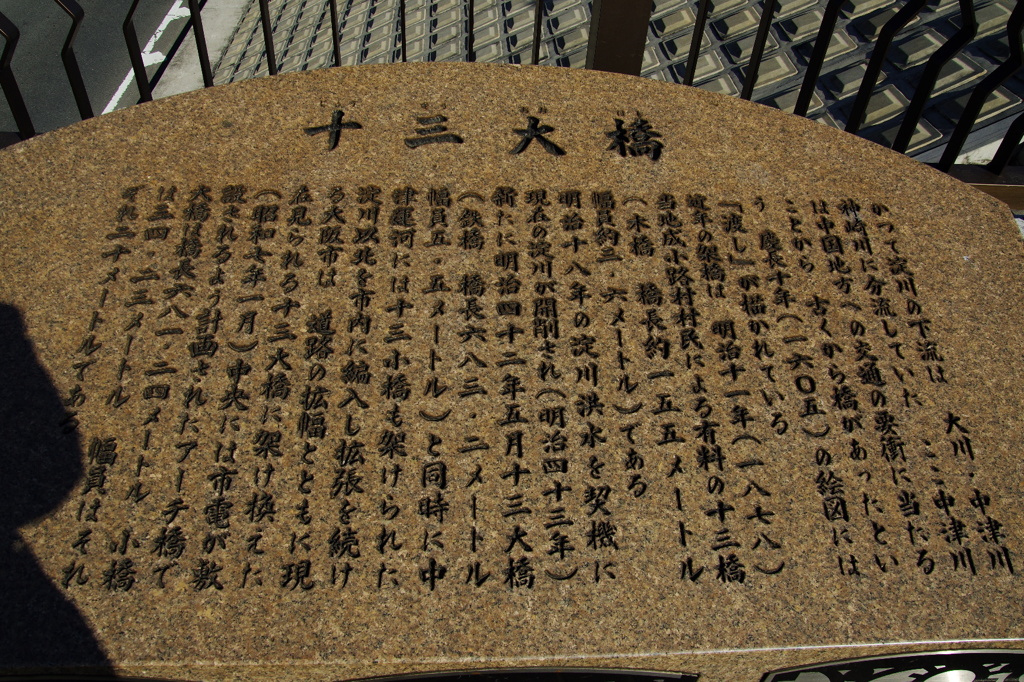 十三大橋
かつて淀川の下流は　大川・中津川
神崎川に分流していた　ここ中津川
は中国地方への交通の要衝に当たる
ことから　古くから橋があったとい
う　慶長十年（一六〇五）の絵図には
「渡し」が描かれている
近年の架橋は　明治十一年（一八七八）
当地成小路村村民による有料の十三橋
（木橋　橋長約一五五メートル
幅員約三・六メートル）である
明治十八年の淀川洪水を契機に
現在の淀川が開削され（明治四十三年）
新たに明治四十二年五月十三大橋
（鉄橋　橋長六八三・二メートル
幅員五・五メートル）と同時に中
津龍河には十三小橋も架けられた
淀川以北を市内に編入し拡張を続け
る大阪市は　道路の拡幅とともに現
在見られる十三大橋に架け換えた
（昭和七年一月）中央には市電が敷
設されるよう計画されたアーチ橋で
大橋は橋長六八一・二四メートル　小橋
は三四・二三メートル　幅員はそれ
ぞれ二十メートルである